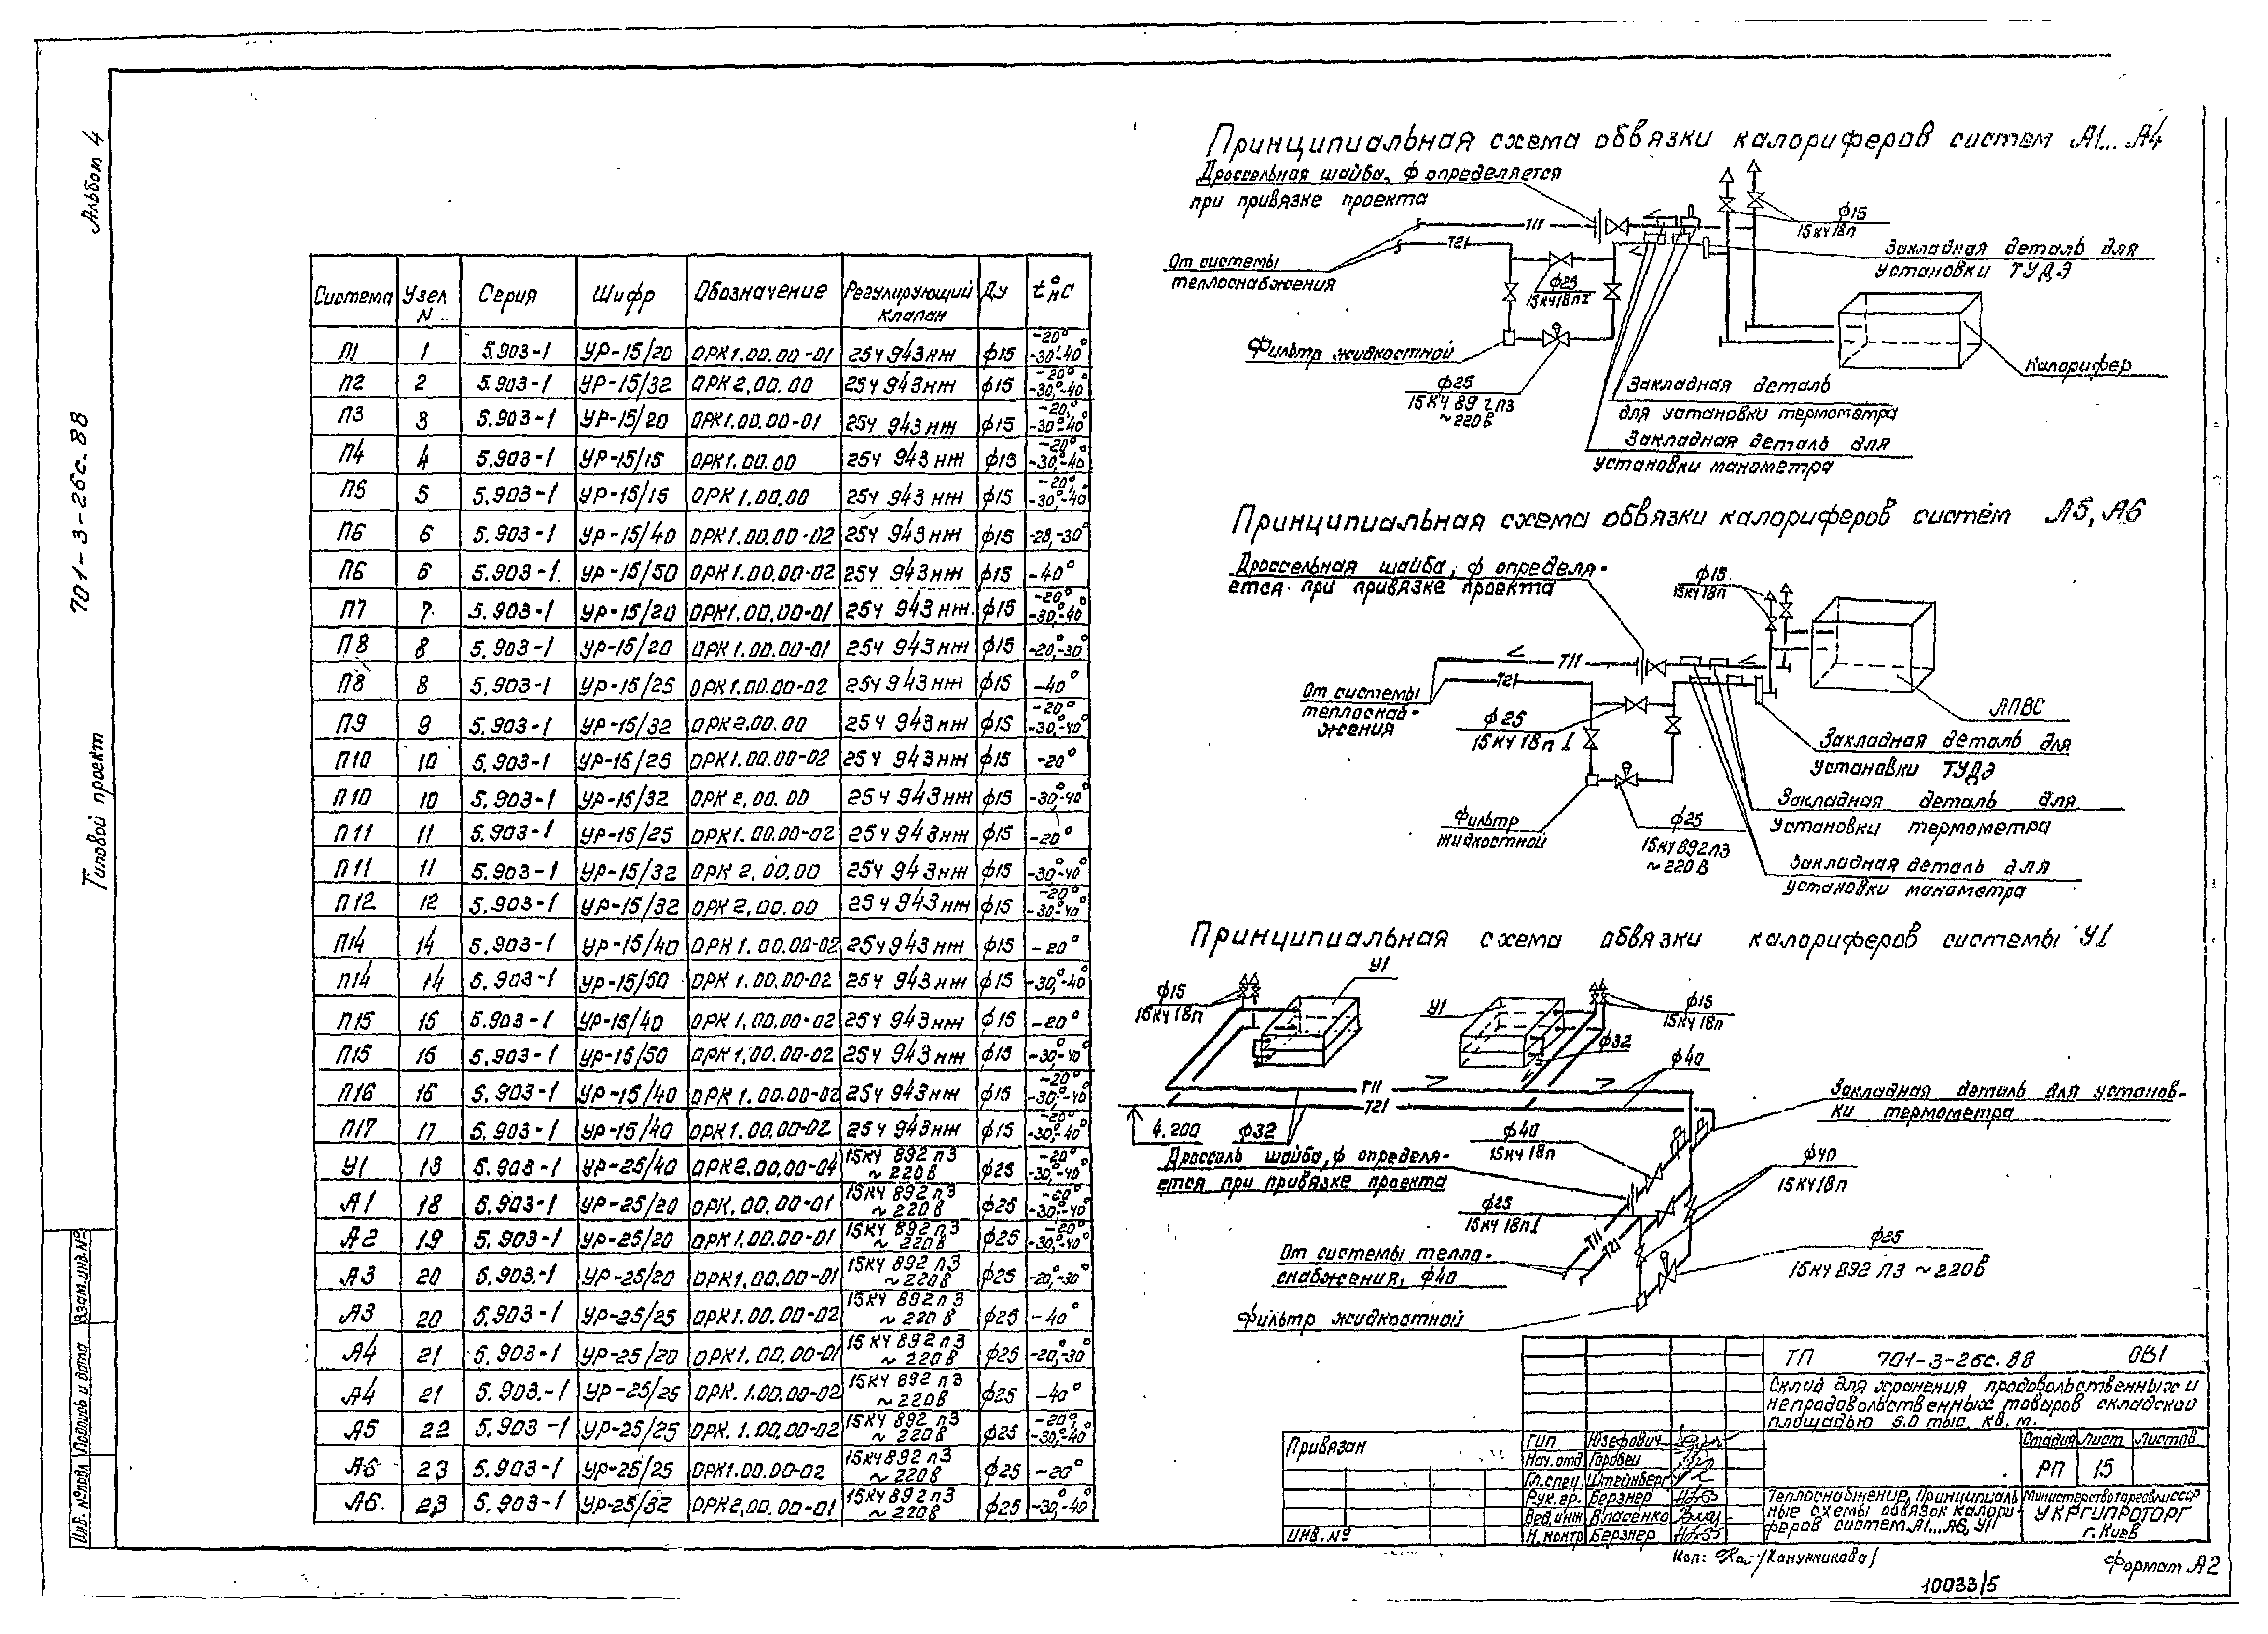 Альбом 4
701-3-26с.88
Типовой проект
Взам.инв.№
Подпись и дата
Инв. №подл
Система Узел N Серия Шифр Обозначение Регулирующий клапан Ду t°н С
П1 1 5.903-1 УР-15/20 ОРК1.00.00-01 25ч 943нж ф15 -20° -30°-40°
П2 2 5.903-1 УР-15/32 ОРК 2.00.00 25ч 943нж ф15 -20° -30°-40
П3 3 5.903-1 УР-15/20 ОРК1.00.00-01 25ч 943нж ф15 -20° -30°-40°
П4 4 5.903-1 УР-15/15 ОРК1.00.00 25ч 943нж ф15 -20° -30°-40°
П5 5 5.903-1 УР-15/15 ОРК1.00.00 25ч 943нж ф15 -20° -30°-40°
П6 6 5.903-1 УР-15/40 ОРК1.00.00-02 25ч 943нж ф15 -28,-30°
П6 6 5.903-1 УР-15/50 ОРК1.00.00-02 25ч 943нж ф15 -40°
П7 7 5.903-1 УР-15/20 ОРК1.00.00-01 25ч 943нж ф15 -20° -30°-40°
П8 8 5.903-1 УР-15/20 ОРК1.00.00-01 25ч 943нж ф15 -20°,-30°
П8 8 5.903-1 УР-15/25 ОРК1.00.00-02 25ч 943нж ф15 -40°
П9 9 5.903-1 УР-15/32 ОРК2.00.00 25ч 943нж ф15 -20° -30°-40°
П10 10 5.903-1 УР-15/25 ОРК1.00.00-02 25ч 943нж ф15 -20°
П10 10 5.903-1 УР-15/32 ОРК 2.00.00 25ч 943нж ф15 -30°-40°
П11 11 5.903-1 УР-15/25 ОРК1.00.00-02 25ч 943нж ф15 -20°
П11 11 5.903-1 УР-15/32 ОРК 2.00.00 25ч 943нж ф15 -30°-40°
П12 12 5.903-1 УР-15/32 ОРК2.00.00 25ч 943нж ф15 -20° -30°-40°
П14 14 5.903-1 УР-15/40 ОРК1.00.00-02 25ч 943нж ф15 -20°
П14 14 5.903-1 УР-15/50 ОРК1.00.00-02 25ч 943нж ф15 -30°-40°
П15 15 5.903-1 УР-15/40 ОРК1.00.00-02 25ч 943нж ф15 -20°
П15 15 5.903-1 УР-15/50 ОРК1.00.00-02 25ч 943нж ф15 -30°-40°
П16 16 5.903-1 УР-15/40 ОРК1.00.00-02 25ч 943нж ф15 -20° -30°-40°
П17 17 5.903-1 УР-15/40 ОРК1.00.00-02 25ч 943нж ф15 -20° -30°-40°
У1 13 5.903-1 УР-25/40 ОРК2.00.00-04 15кч 892 п3 ~220в ф25 -20° -30°-40°
А1 18 5.903-1 УР-25/20 ОРК.00.00-01 15кч 892 п3 ~220в ф25 -20° -30°-40°
А2 19 5.903-1 УР-25/20 ОРК1.00.00-01 15кч 892 п3 ~220в ф25 -20° -30°-40°
А3 20 5.903-1 УР-25/20 ОРК1.00.00-01 15кч 892 п3 ~220в ф25 -20°,-30°
А3 20 5.903-1 УР-25/25 ОРК1.00.00-02 15кч 892п3 ~220в ф25 -40°
А4 21 5.903-1 УР-25/20 ОРК1.00.00-01 15кч 892п3 ~220в ф25 -20°,-30°
А4 21 5.903.-1 УР-25/25 ОРК.1.00.00-02 15кч 892 п3 ~220в ф25 -40°
А5 22 5.903-1 УР-25/25 ОРК.1.00.00-02 15кч 892 п3 ~220в ф25 -20° -30°-40°
А6 23 5.903-1 УР-25/25 ОРК1.00.00-02 15кч892 п3 ~220в ф25 -20°
А6. 23 5.903-1 УР-25/32 ОРК2.00.00-01 15кч892 п3 ~220в ф25 -30°-40°
Принципиальная схема обвязки калориферов систем А1...А4
Дроссельная шайба, ф определяется
при привязке проекта
Т11
Т21
От системы
теплоснабжения
ф15
15кч18п
Закладная деталь для
установки ТУДЭ
ф25
15кч18п1
Фильтр жидкостной
ф25
15кч 892п3
~220в
Калорифер
Закладная деталь
для установки термометра
Закладная деталь для
установки манометра
Принципиальная схема обвязки калориферов систем А5, А6
Дроссельная шайба, ф определя-
ется при привязке проекта
ф15
15кч18п
Т11
Т21
От системы
теплоснаб-
жения
ф25
15кч18п1
АПВС
Закладная деталь для
установки ТУДЭ
Закладная деталь для
установки термометра
Фильтр
жидкостной
ф25
15кч892п3
~220в
Закладная деталь для
установки манометра
Принципиальная схема обвязки калориферов системы У1
ф15
15кч18п
У1
У1
ф15
15кч18п
ф32
ф40
Т11
Т21
Закладная деталь для установ-
ки термометра
4.200
ф32
ф40
15кч18п
Дроссель шайба, ф определя-
ется при привязке проекта
ф40
15кч18п
ф25
15кч18п1
Т11
Т21
От системы тепло-
снабжения, ф40
ф25
15кч 892 п3 ~220в
Фильтр жидкостной
ТП 701-3-26с.88 ОВ1
Склад для хранения продовольственных и
непродовольственных товаров складской
площадью 5.0 тыс. кв. м.
Привязан
ИНВ.№
ГИП Юзефович
Нач.отд
Гл.спец Штейнберг
Рук.гр. Берзнер
Вед.инж Власенко
Н.контр Берзнер
Стадия Лист Листов
РП 15
Теплоснабжение, Принципиаль
ные схемы обвязок калори-
феров систем А1...А6, У1
Министерство торговли СССР
УКРГИПРОТОРГ
г.Киев
Коп: (Канунникова)
Формат А2
10033/5